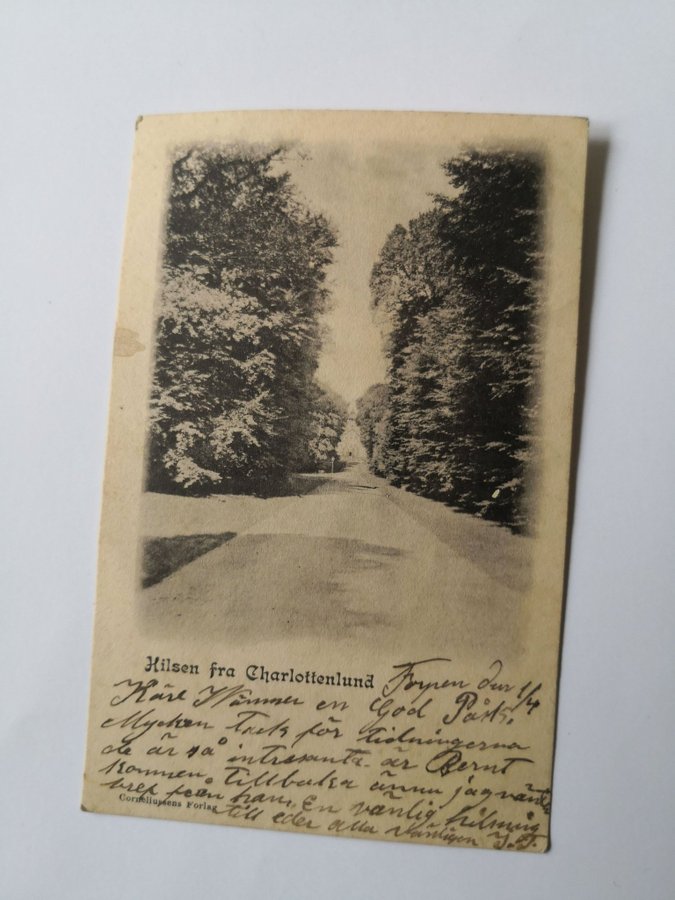 Hilsen fra Charlottenlund
den 1/4
Käre Wänner en God Påsk.
Mycken Tack för tidningerna
de är så intresanta. är Bernt
kommen tillbaka ännu jag vänta
bref från ham. En vänlig hilsning
till eder alla vänligen
Corneliussens Forlag